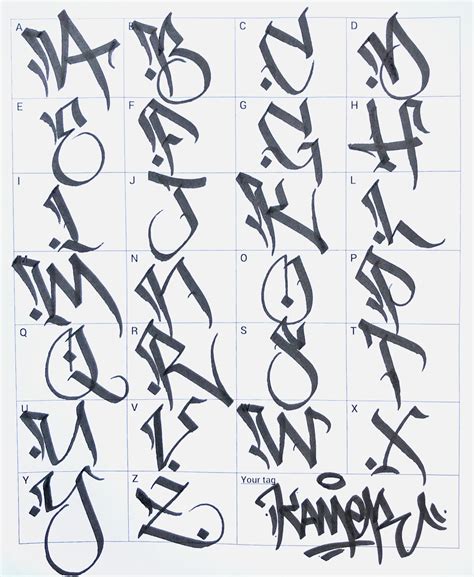 A B C D
A B C D
E F G H
E F G H
I J K L
I J K L
M N O P
M N O P
Q R S T
Q R S T
U V W X
U V W X
Y Z Your tag
Y Z KAMeR